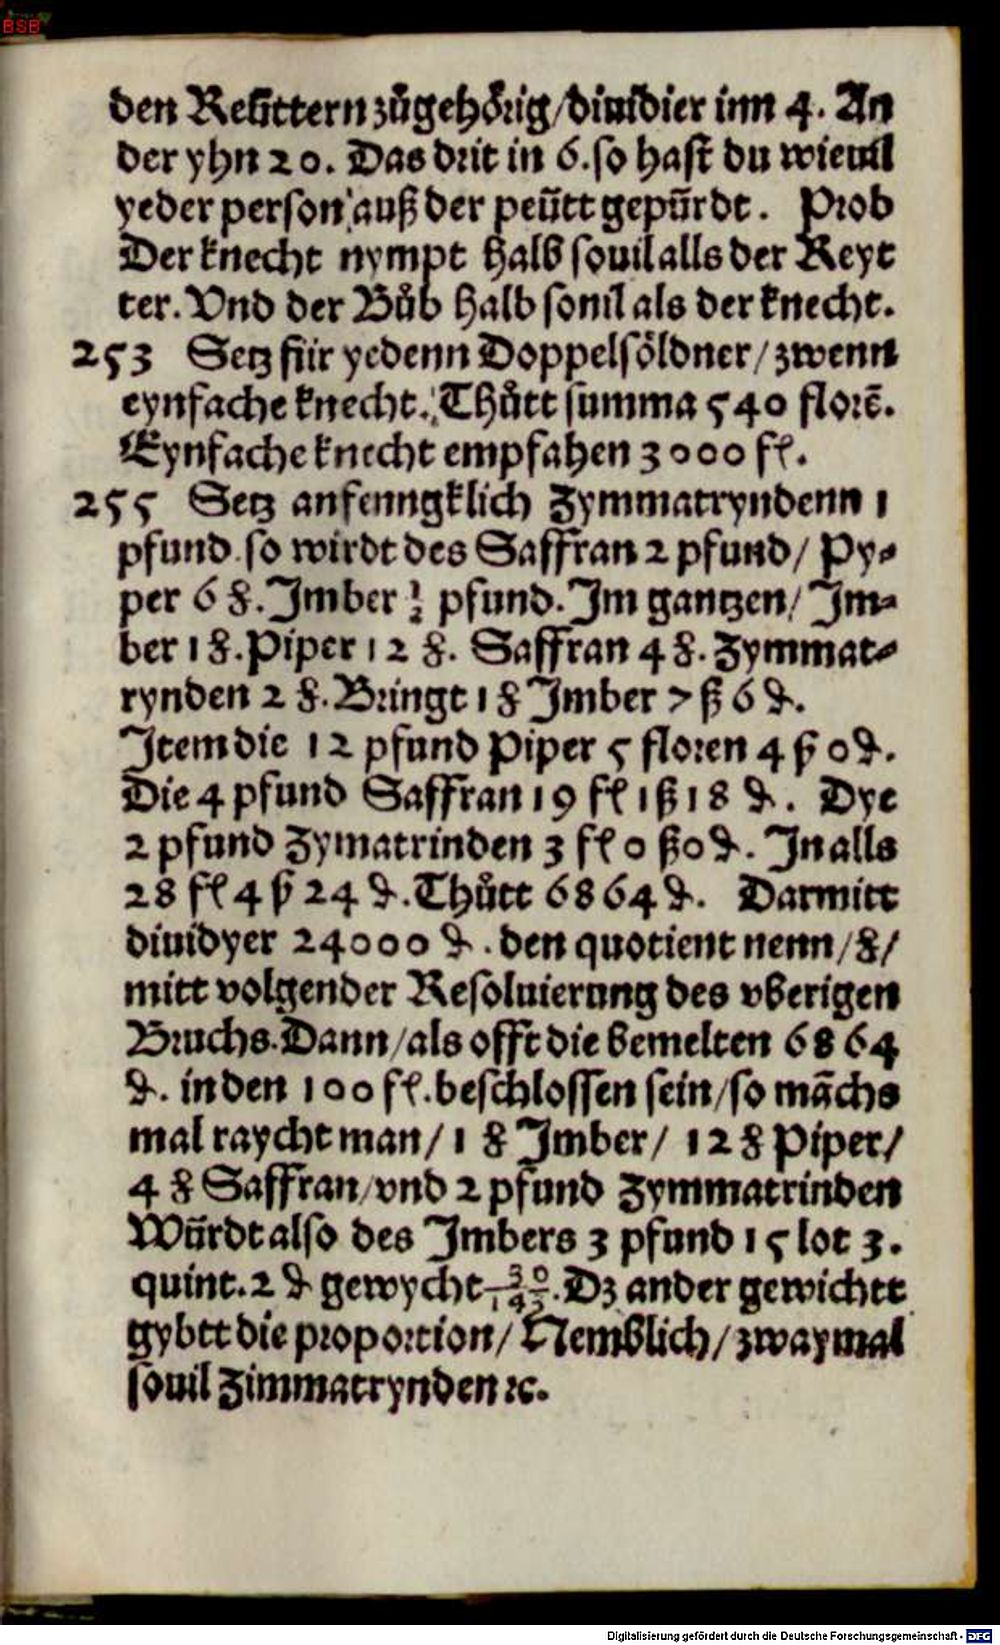 BSB
den Reüttern zůgehörig/diuidier inn 4. An
der yhn 20. Das drit in 6. so hast du wieuil
yeder person auß der peütt gepürdt. Prob
Der knecht nympt halb souil alls der Reyt
ter. Vnd der Bůb halb souil als der knecht.
253 Setz für yedenn Doppelsöldner/zwenn
eynfache knecht. Thůtt summa 540 florē.
Eynfache knecht empfahen 3000 fl.
255 Setz anfenngklich Zymmatryndenn 1
pfund so wirdt des Saffran 2 pfund/ Py⸗
per 6 ℔. Imber ½ pfund. Im gantzen/ Im⸗
ber 1 ℔. Piper 12 ℔. Saffran 4 ℔. Zymmat⸗
rynden 2 ℔. Bringt 1 ℔ Imber 7 ß 6 ₰.
Item die 12 pfund Piper 5 floren 4 ß 0 ₰.
Die 4 pfund Saffran 19 fl 1 ß 18 ₰. Dye
2 pfund Zymatrinden 3 fl 0 ß 0 ₰. In alls
28 fl 4 ß 24 ₰. Thůtt 6864 ₰. Darmitt
diuidyer 24000 ₰. den quotient nenn/℔/
mitt volgender Resoluierung des vberigen
Bruchs. Dann/als offt die bemelten 6864
₰. in den 100 fl. beschlossen sein/so māchs
mal raycht man/ 1 ℔ Imber/ 12 ℔ Piper/
4 ℔ Saffran/vnd 2 pfund Zymmatrinden
Würdt also des Imbers 3 pfund 15 lot 3.
quint. 2 ₰ gewycht 30/143. Dz ander gewichtt
gybtt die proportion/ Nemblich/zwaymal
souil Zimmatrynden ꝛc.
Digitalisierung gefördert durch die Deutsche Forschungsgemeinschaft - DFG